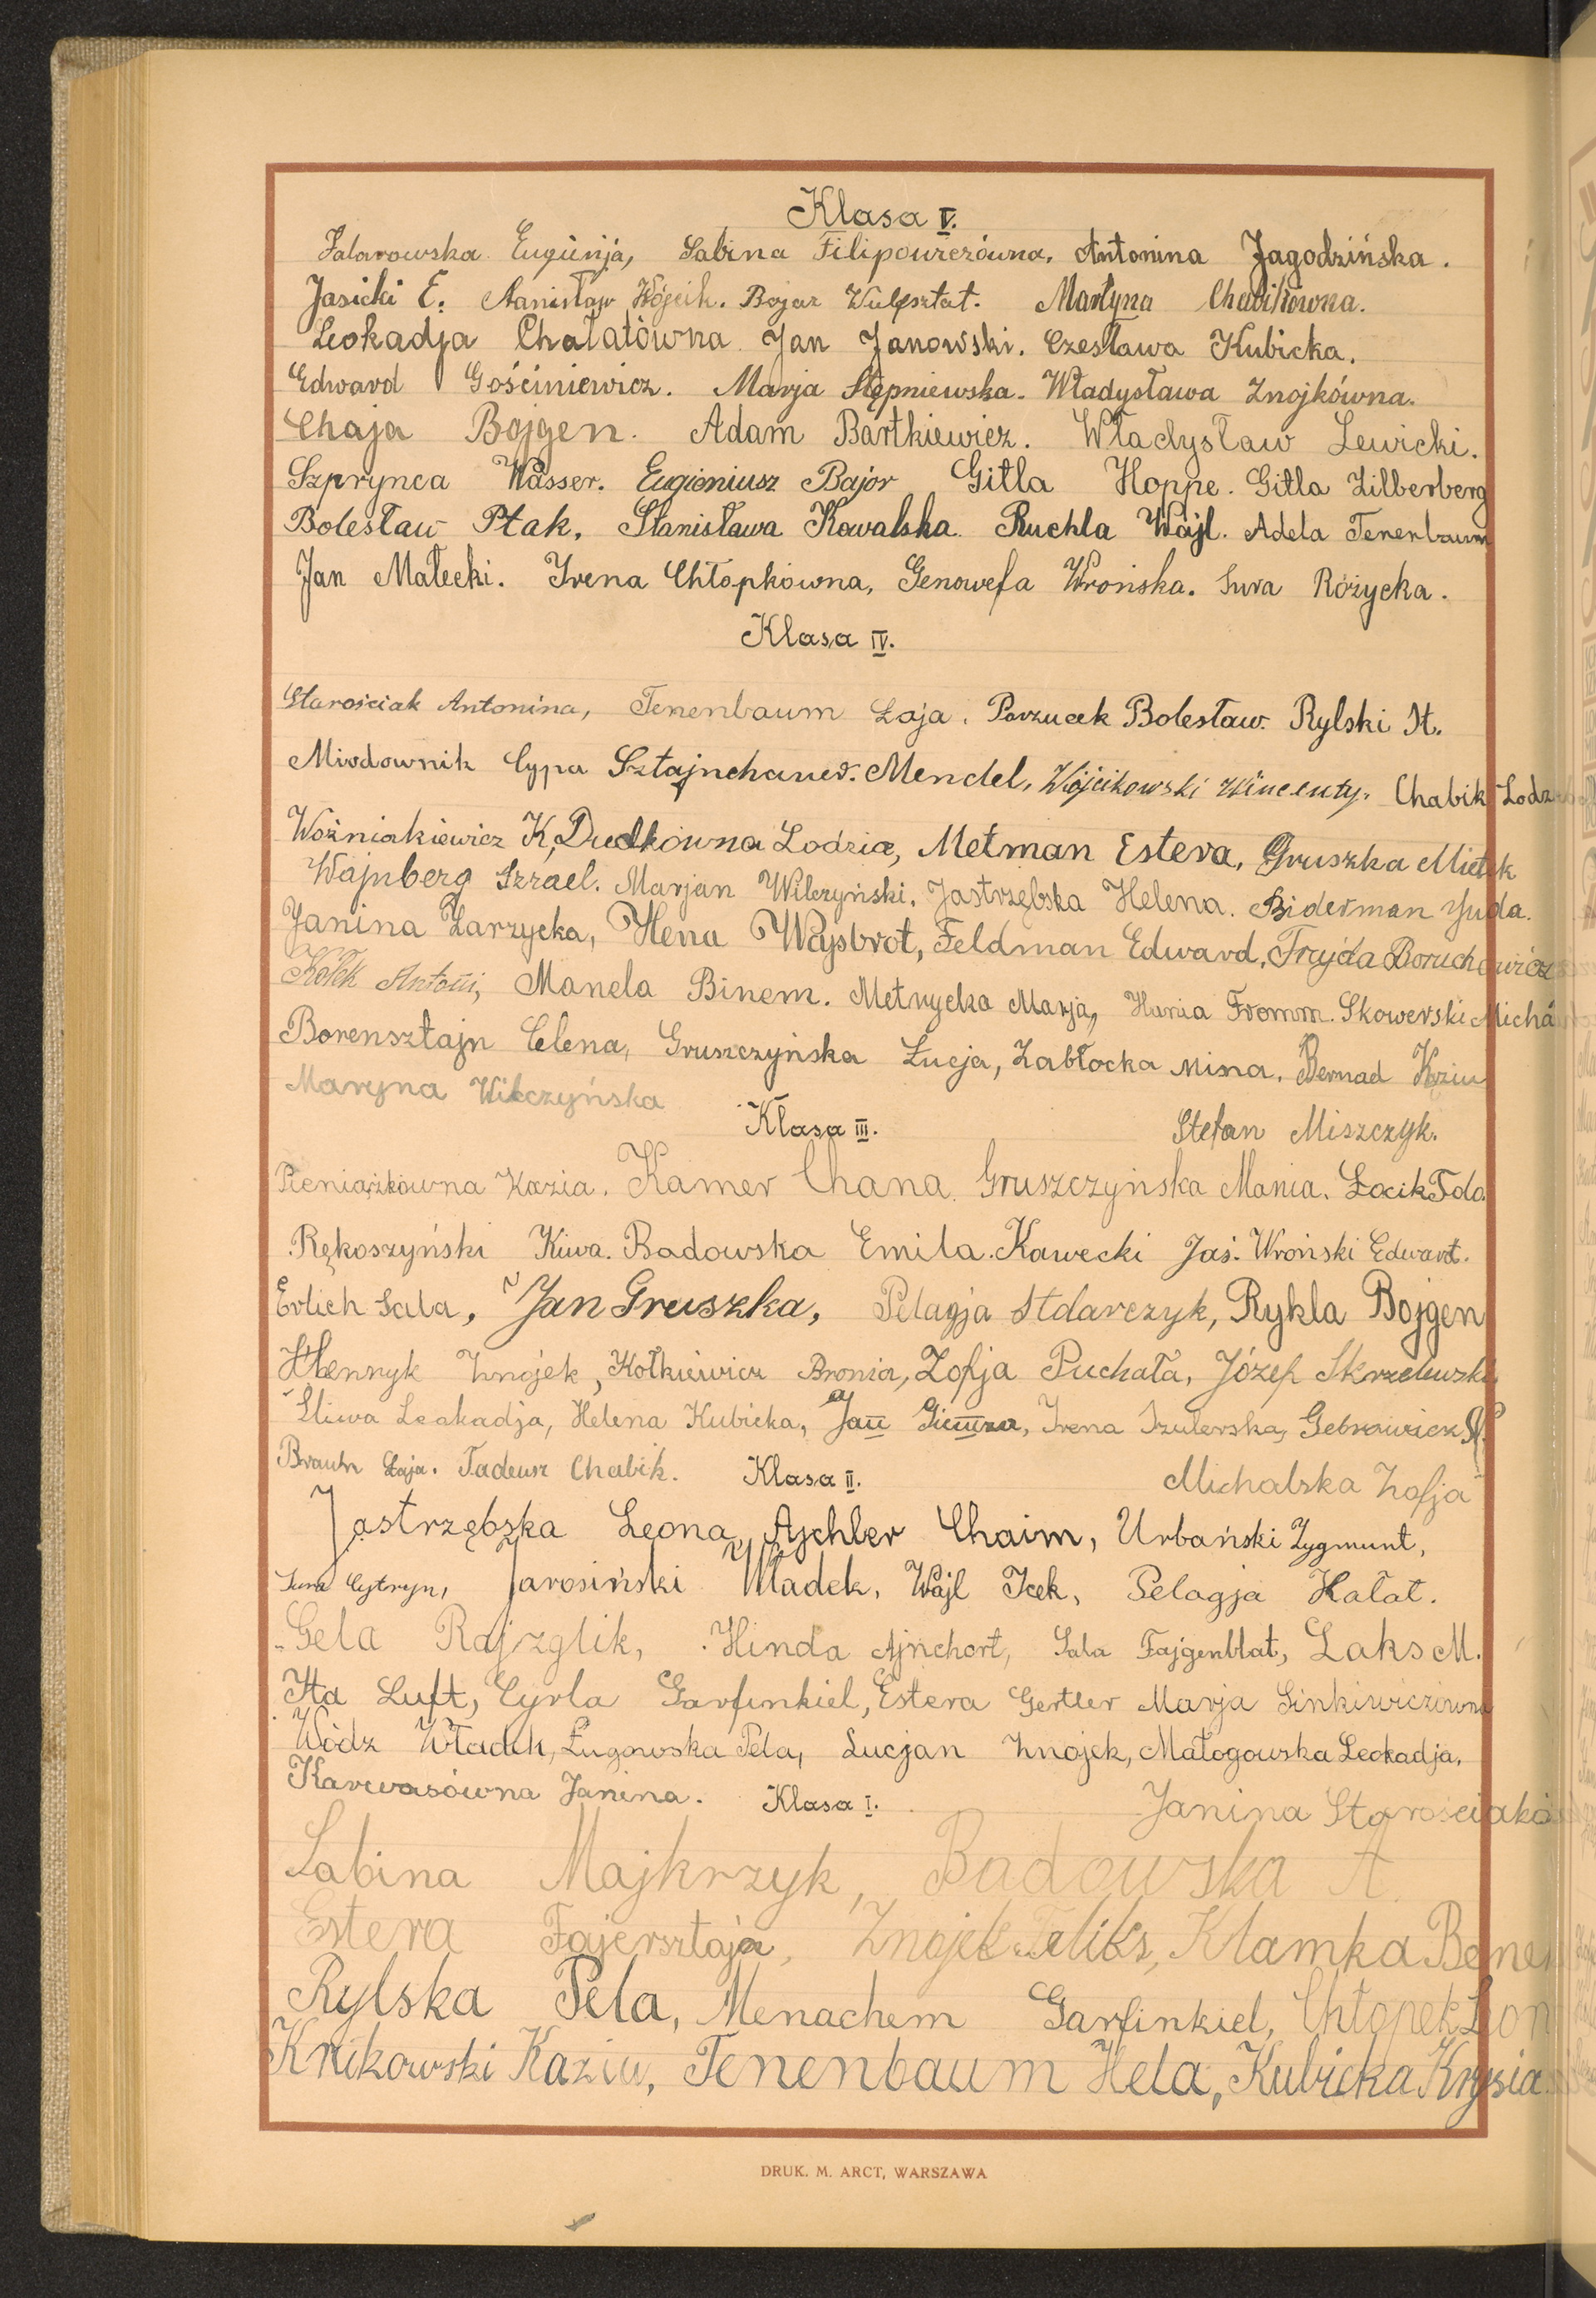 Klasa V.
Falarowska Eugenja, Sabina Filipowiczówna, Antonina Jagodzińska.
Jasicki E. Stanisław Wójcik. Bajar Wulfsztat. Martyna Chabikówna.
Leokadja Chałatówna Jan Janowski. Czesława Kubicka.
Edward Gościniewicz. Marja Stępniewska. Władysława Znojkówna.
Chaja Bojgen. Adam Bartkiewicz. Władysław Lewicki.
Szprynca Wasser. Eugieniusz Bajor Gitla Hoppe. Gitla Zilberberg
Bolesław Ptak, Stanisława Kowalska Ruchla Wajl. Adela Tenenbaum
Jan Małecki. Irena Chłopkówna, Genowefa Wrońska. Sura Różycka.
Klasa IV.
Starościak Antonina, Tenenbaum Łaja. Porzucek Bolesław. Rylski St.
Miodownik Cypa Sztajnchauer. Mendel, Wójcikowski Wincenty. Chabik Lodz
Woźniakiewicz K, Dudkówna Lodzia, Metman Estera, Gruszka Mietek
Wajnberg Izrael. Marjan Wilczyński. Jastrzębska Helena. Biderman Juda.
Janina Zarzycka, Hena Wajsbrot, Feldman Edward, Frajda Boruchowicz
Kołek Antoni, Manela Binem. Metrycka Marja, Hania Fromm. Skowerski Micha
Borensztajn Celena, Gruszczyńska Łucja, Zabłocka Mina. Bernad Kaziu
Maryna Wilczyńska
Klasa III. Stefan Miszczyk.
Pieniążkówna Kazia. Kamer Chana. Gruszczyńska Mania. Łocik Fola
Rękoszyński Kiwa. Badowska Emila. Kawecki Jaś. Wroński Edwart.
Erlich Sala, Jan Gruszka, Pelagja Stolarczyk, Rykla Bojgen
Henryk Znojek, Kotkiewicz Bronia, Zofja Puchała, Józef Skrzelewski
Śliwa Leokadja, Helena Kubicka, Jan Giemza, Irena Szulerska, Gebrowicz
Brauhn Łaja. Tadeusz Chabik. Klasa II. Michalska Zofja
Jastrzębska Leona, Ajchler Chaim, Urbański Zygmunt,
Sura Cytryn, Jarosiński Władek, Wajl Icek, Pelagja Hałat.
Gela Rajzglik, Hinda Ajnchort, Sala Fajgenblat, Laks M.
Ita Luft, Cyrla Garfinkiel, Estera Gertler Marja Sinkiewiczówna
Wódz Władek, Ługowska Pela, Lucjan Znojek, Małogowska Leokadja,
Karwasówna Janina. Klasa I. Janina Starościakó
Sabina Majkrzyk, Badowska A.
Estera Fajersztajn, Znojek Feliks, Klamka Bene
Rylska Pela, Menachem Garfinkiel, Chłopek Lon
Krukowski Kaziu, Tenenbaum Hela, Kubicka Krysia
DRUK. M. ARCT, WARSZAWA